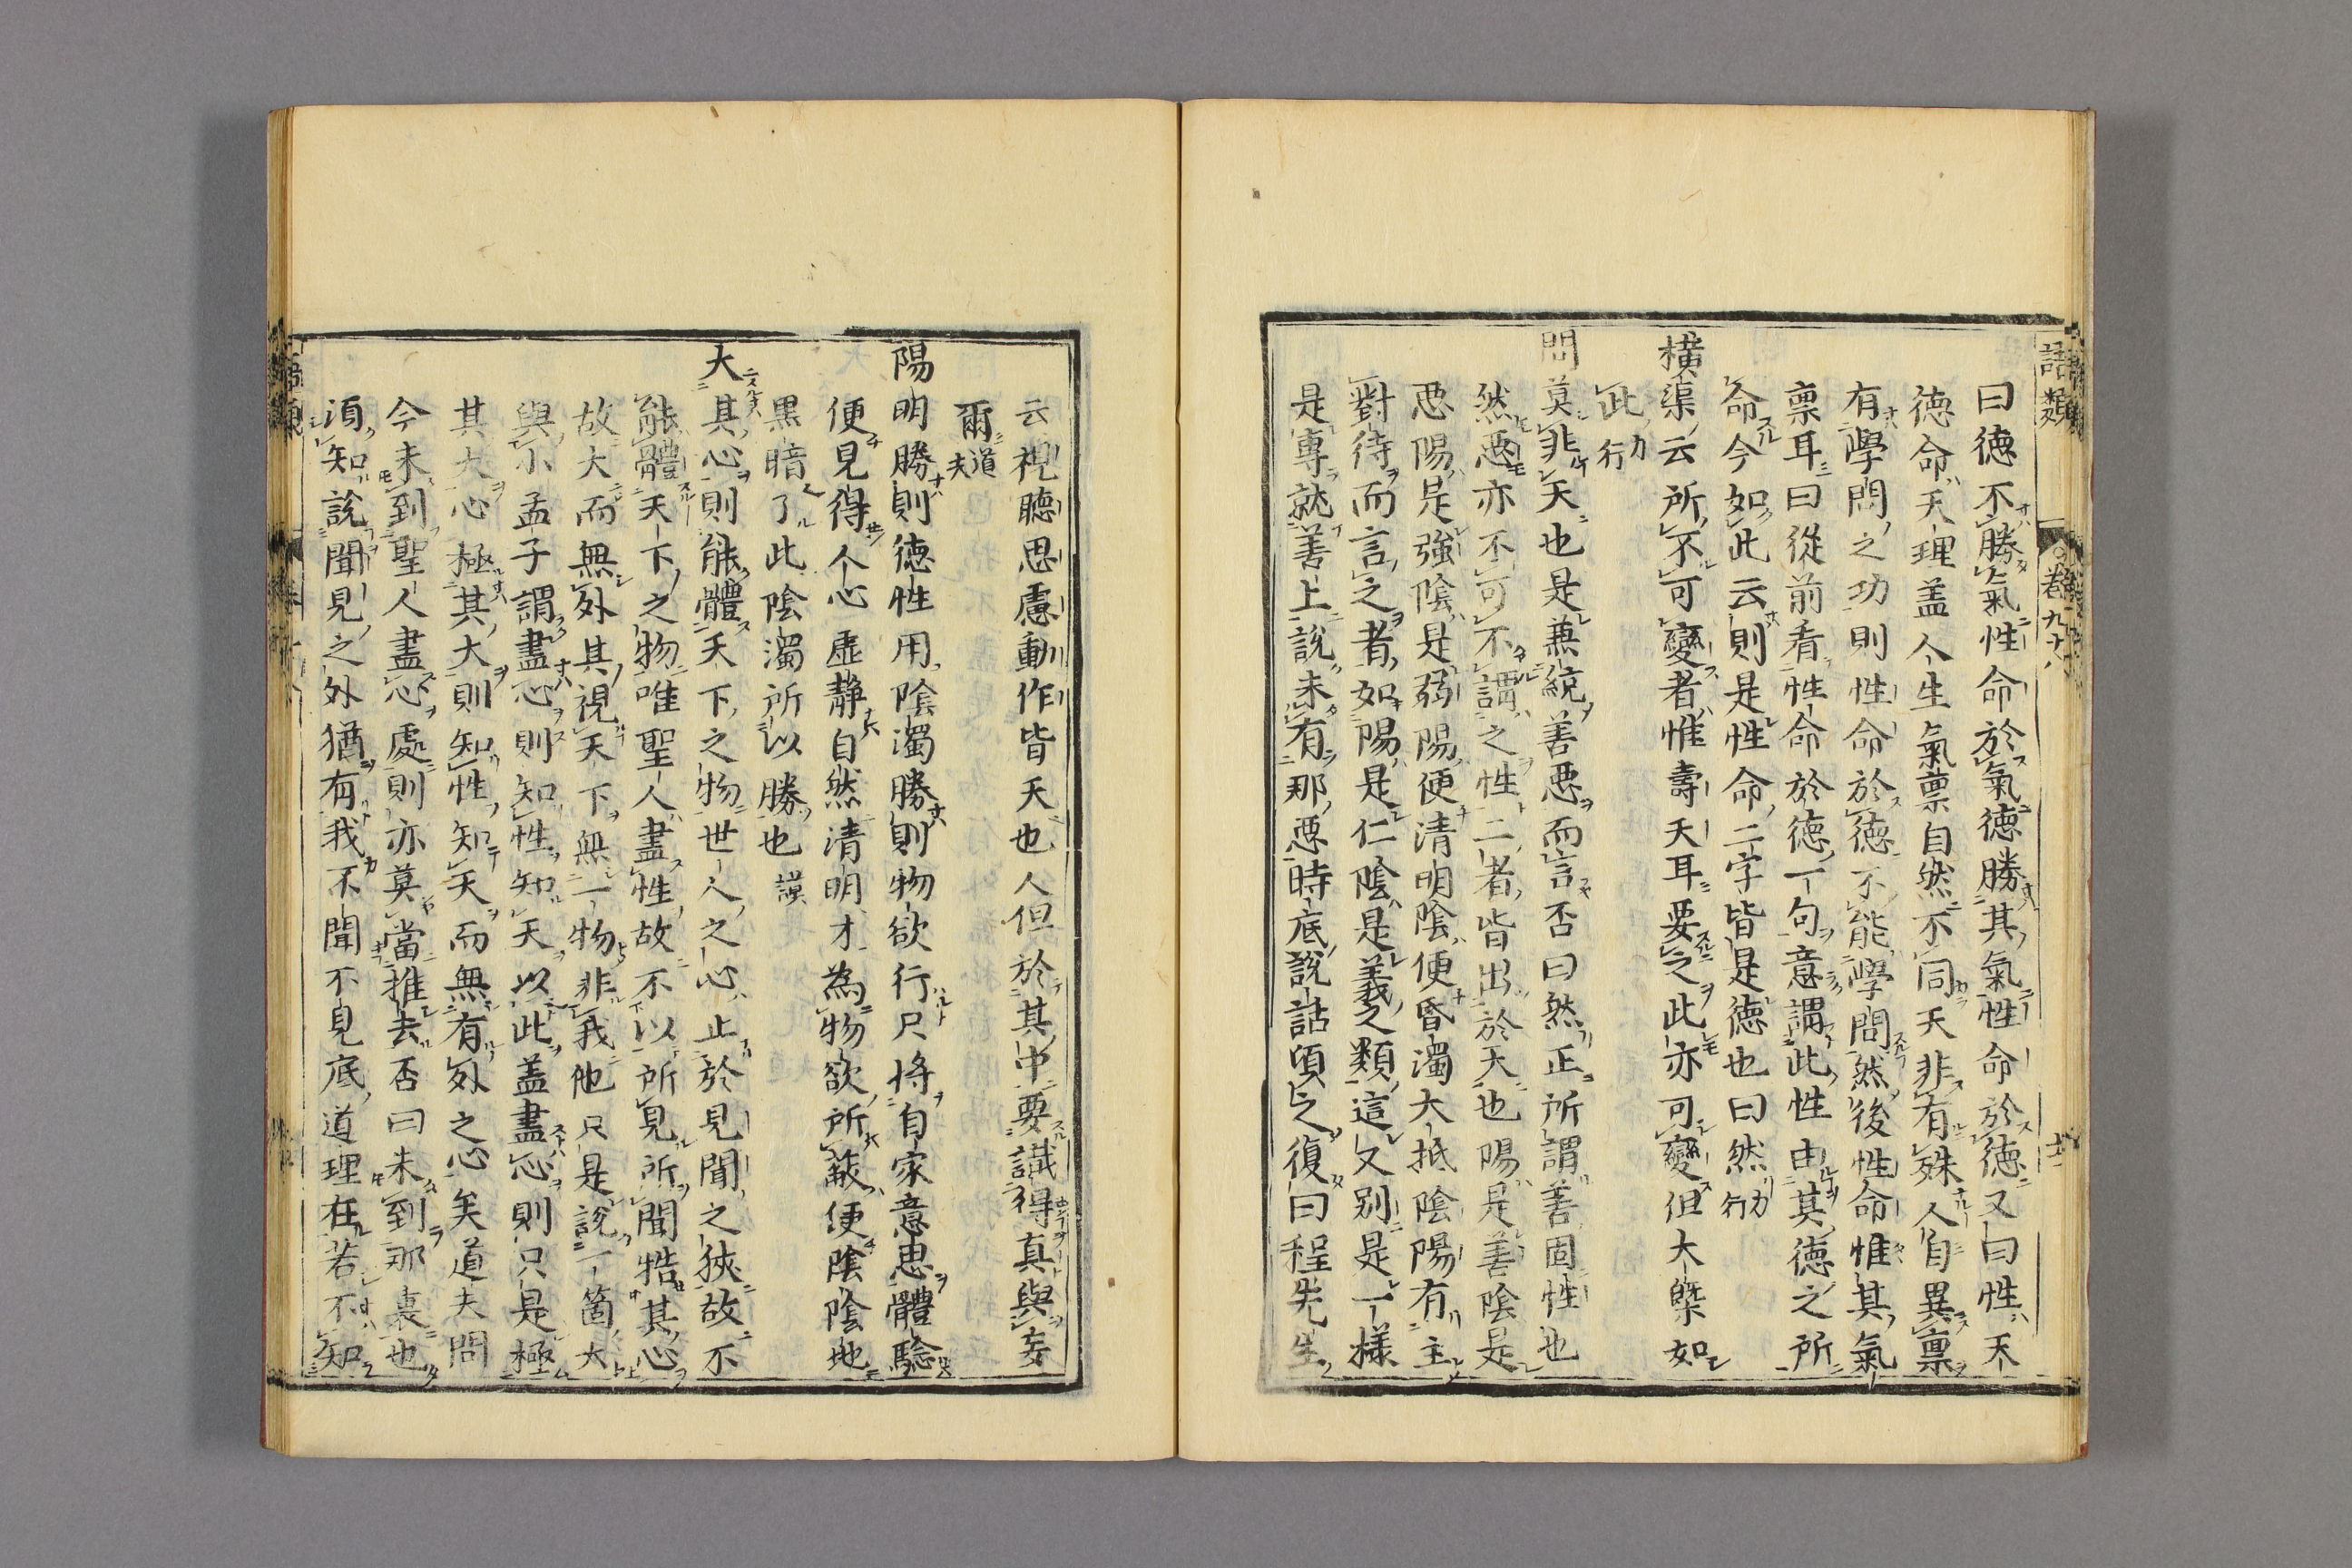 語類
卷九十八
曰德不勝氣性命於氣德勝其氣性命於德又曰性天
德命天理盖人生氣禀自然不同天非有殊人自異禀
有學問之功則性命於德不能學問然後性命惟其氣
禀耳曰從前看性命於德一句意謂此性由其德之所
命今如此云則是性命二字皆是德也曰然力行
橫渠云所不可變者惟壽夭耳要之此亦可變但大槩如
此力行
問莫非天也是兼統善惡而言否曰然正所謂善固性也
然惡亦不可不謂之性二者皆出於天也陽是善陰是
惡陽是強陰是弱陽便清明陰便昏濁大抵陰陽有主
對待而言之者如陽是仁陰是義之類這又別是一樣
是專就善上說未有那惡時底說話頃之復曰程先生
云視聽思慮動作皆天也人但於其中要識得真與妄
爾道夫
陽明勝則德性用陰濁勝則物欲行只將自家意思體驗
便見得人心虛静自然清明才為物欲所蔽便陰陰地
黒暗了此陰濁所以勝也謨
大其心則能體天下之物世人之心止於見聞之狹故不
能體天下之物唯聖人盡性故不以所見所聞牿其心
故大而無外其視天下無一物非我他只是說一箇大
與小孟子謂盡心則知性知天以此盖盡心則只是極
其大心極其大則知性知天而無有外之心矣道夫問
今未到聖人盡心處則亦莫當推去否曰未到那裏也
須知說聞見之外猶有我不聞不見底道理在若不知